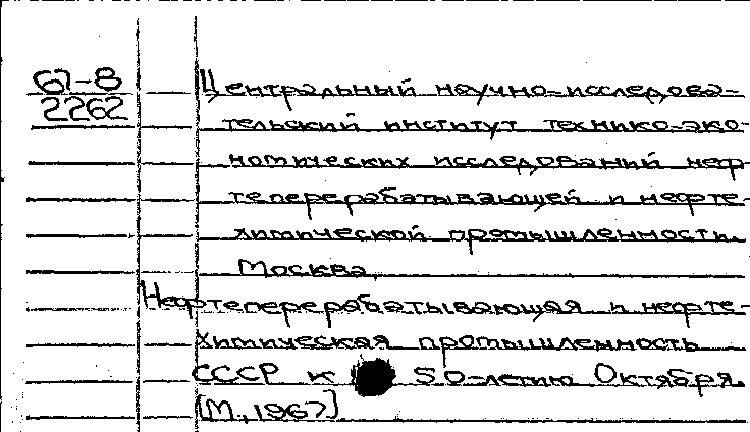 67-8
2262
Центральный научно-исследова-
тельский институт технико-эко-
номических исследований неф-
теперерабатывающей и нефте-
химической промышленности.
Москва.
Нефтеперерабатывающая и нефте-
химическая промышленность
СССР к 50-летию Октября.
[М., 1967]